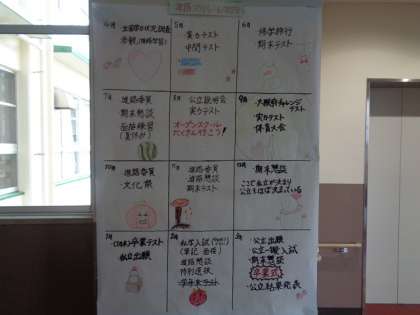 進路スケジュール
4月
5月
実力テスト
中間テスト
6月
修学旅行
期末テスト
7月
進路委員
期末懇談
面接練習
(夏休み)
8月
公立説明会
実力テスト
オープンスクール
たくさん行こう!
9月
・大阪府チャレンジ
テスト
実力テスト
体育大会
10月
進路委員
文化祭
11月
進路委員
進路懇談
期末テスト
12月
・期末懇談
ここで私立が決まり
公立もほぼ決まっている
1月
卒業テスト
私立出願
2月
私学入試
(筆記 面接)
進路懇談
特別選抜
学年末テスト
3月
・公立出願
・公立一般入試
・期末懇談
卒業式
・公立結果発表